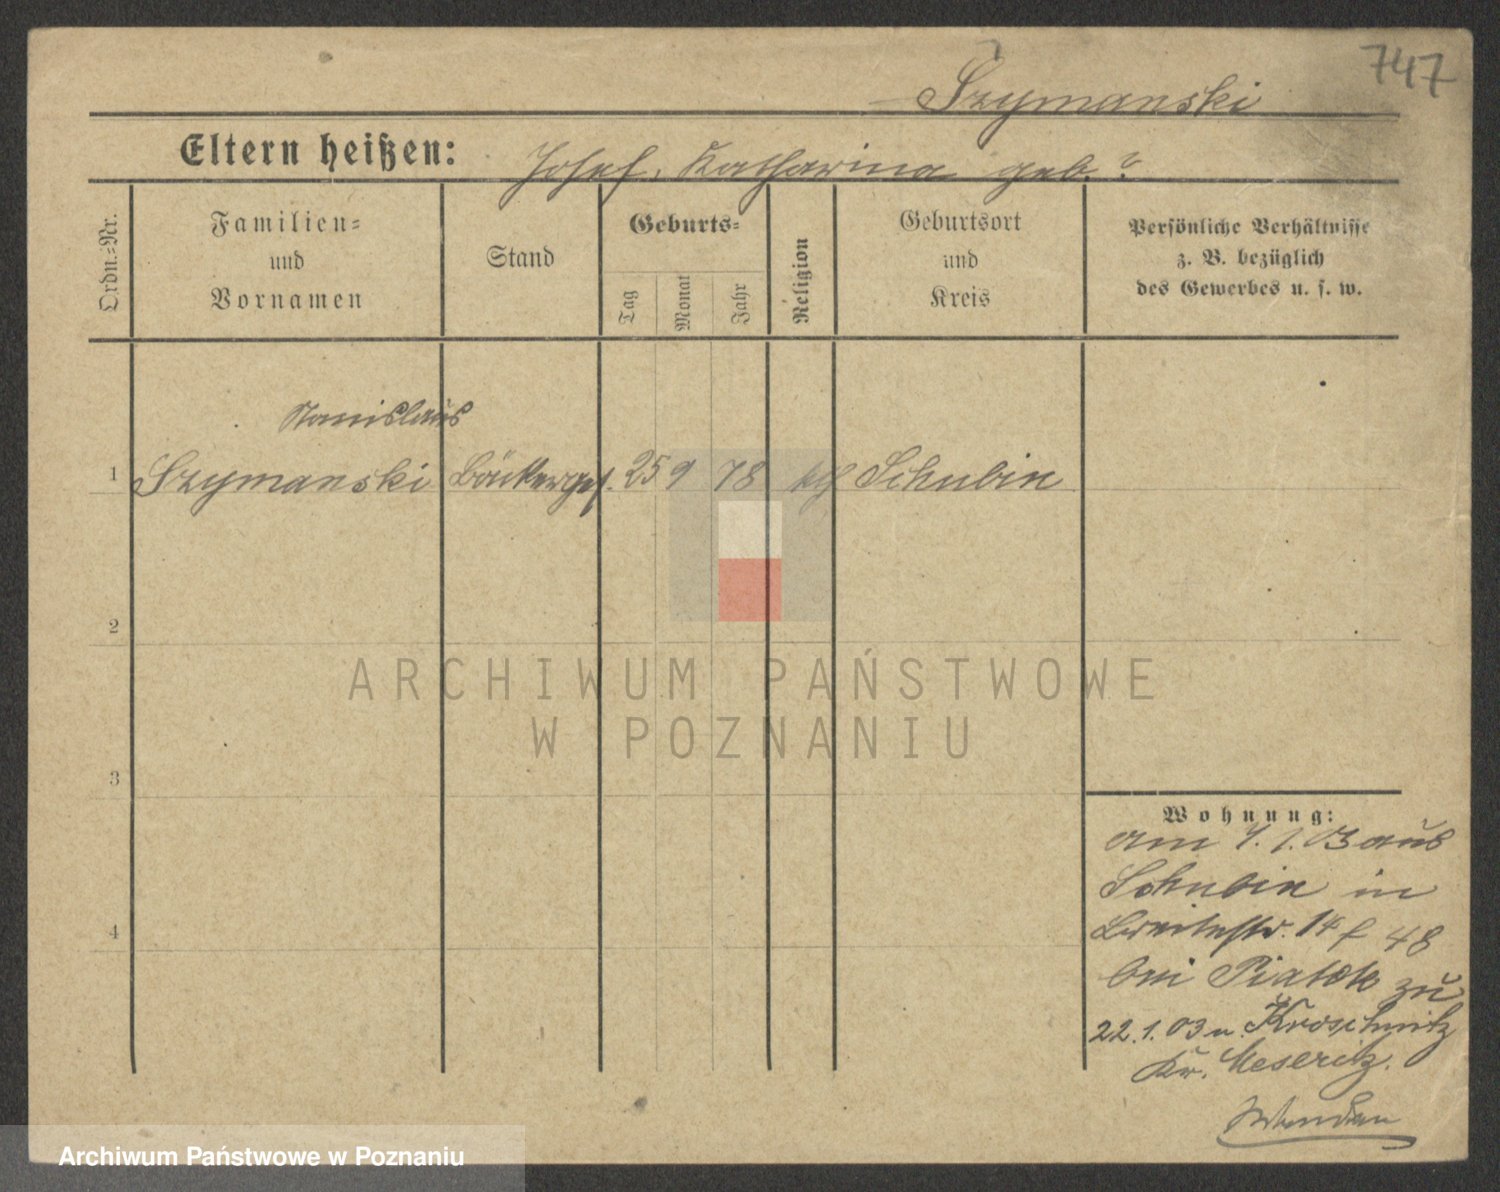 747
Szymanski
Eltern heißen: Josef, Katharina geb. ?
Ordn.=Nr.
Familien=
und
Vornamen
Stand
Geburts=
Tag
Monat
Jahr
Religion
Geburtsort
und
Kreis
Persönliche Verhältnisse
z. B. bezüglich
des Gewerbes u. s. w.
Stanislaus
1 Szymanski Bäckerges. 25 9 78 kth Schubin
2
3
4
Wohnung:
am 7.1.03 aus
Schubin in
Breitestr. 14 f 48
bei Piatek zu
22.1.03 n. Kroschnitz
Kr. Meseritz.
ARCHIWUM PAŃSTWOWE
W POZNANIU
Archiwum Państwowe w Poznaniu